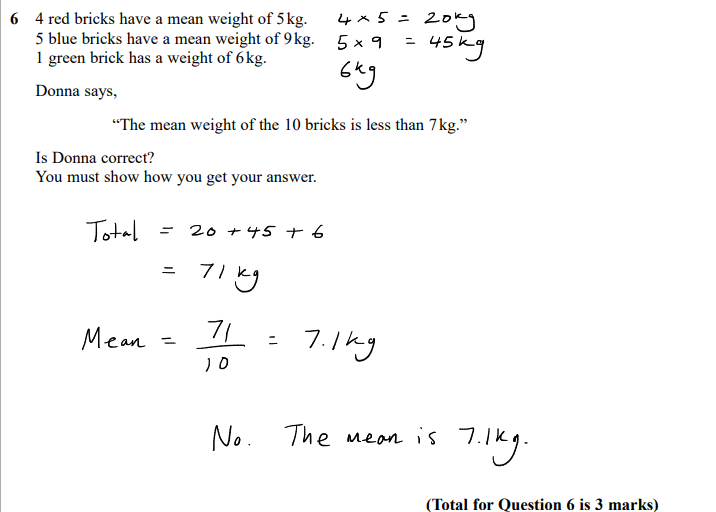 6 4 red bricks have a mean weight of 5 kg. 4 × 5 = 20kg
5 blue bricks have a mean weight of 9 kg. 5 × 9 = 45kg
1 green brick has a weight of 6 kg. 6kg
Donna says,
“The mean weight of the 10 bricks is less than 7 kg.”
Is Donna correct?
You must show how you get your answer.
Total = 20 + 45 + 6
= 71 kg
Mean = 71/10 = 7.1kg
No. The mean is 7.1kg.
(Total for Question 6 is 3 marks)